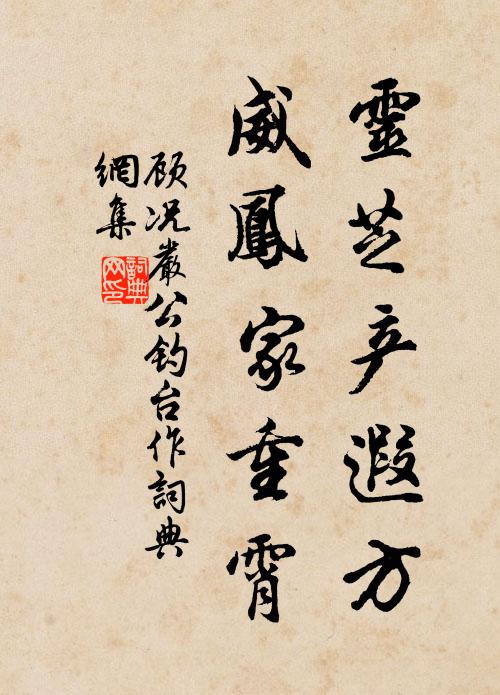 靈芝产遐方
威鳳家重霄
顾况嚴公钓台作詞典
網集
詞典網印